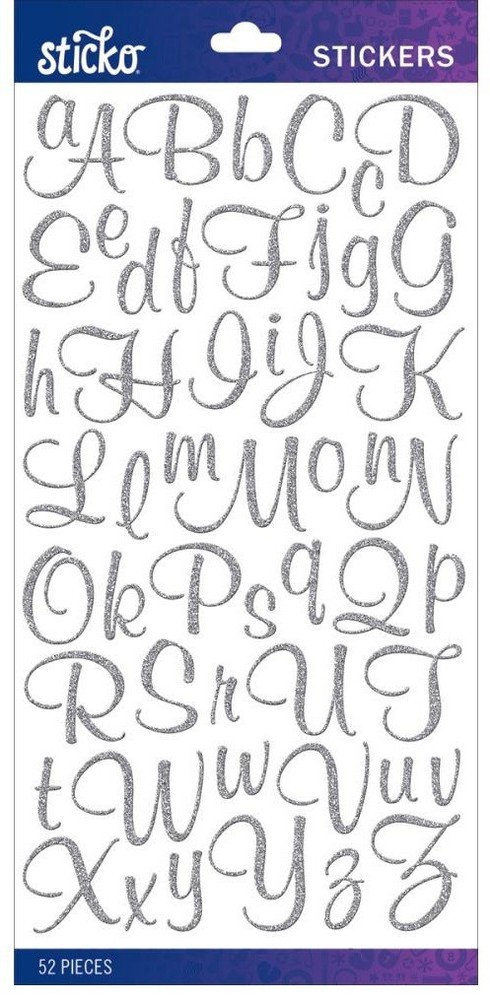 sticko
STICKERS
a A B b C c D
E e d f F j g G
h H I i J K
L l m M o n N
O k P s q Q p
R S r U T
t W w V u v
X x y Y z Z
52 PIECES